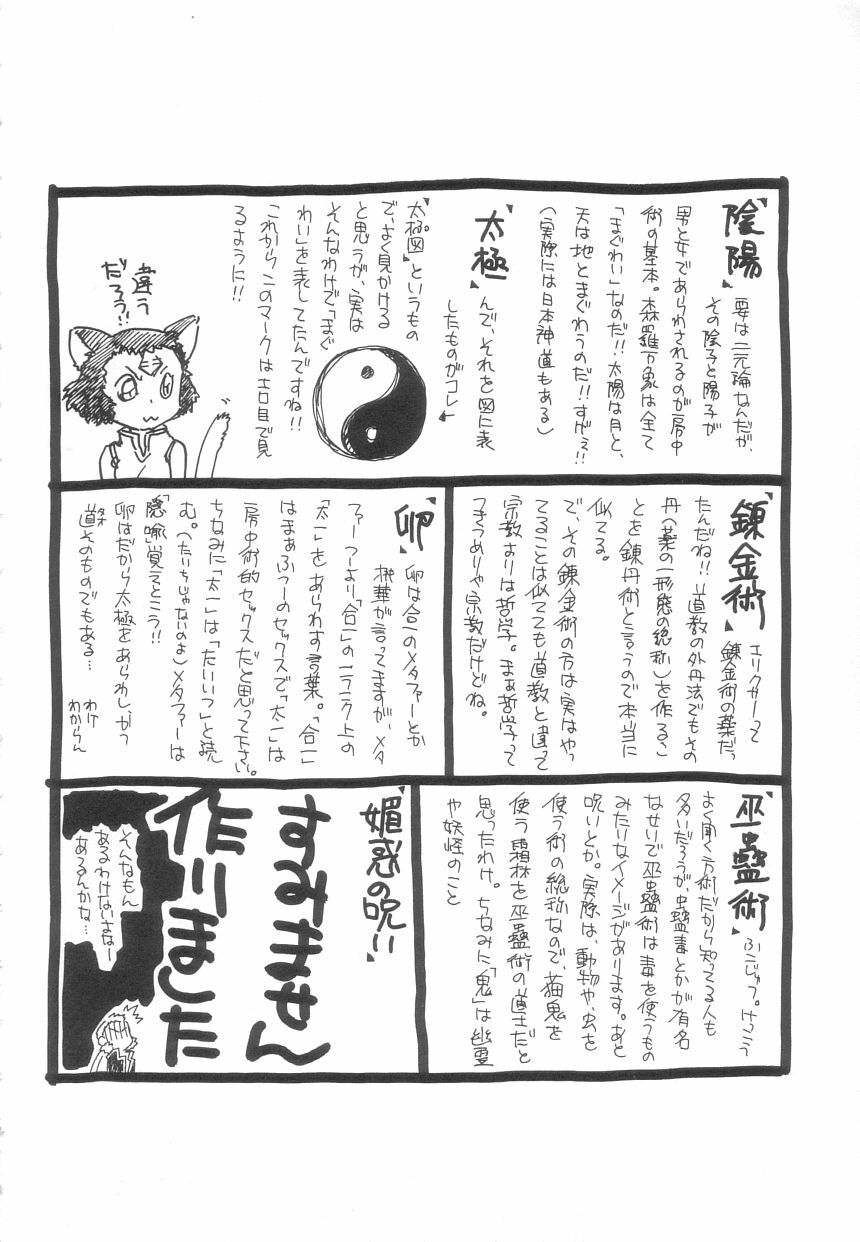 陰陽
要は二元論なんだが、
その陰子と陽子が
男と女であらわされるのが房中
術の基本。森羅万象は全て
「まぐわい」なのだ!!太陽は月と、
天は地とまぐわうのだ!!すげぇ!!
(実際には日本神道もある)
太極
んで、それを図に表
したものがコレ
太極図』というもの
で、よく見かける
と思うが、実は
そんなわけで「まぐ
わい」を表してたんですね!!
これからこのマークはエロ目で見
るように!!
違う
だろう!!
錬金術
エリクサーって
錬金術の薬だっ
たんだね!!道教の外丹法でもその
丹(薬の一形態の総称)を作るこ
とを錬丹術と言うので本当に
似てる。
で、その錬金術の方は実はやっ
てることは似てても道教と違って
宗教よりは哲学。まぁ哲学って
つきつめりゃ宗教だけどね。
卵
卵は合一のメタファーとか
桃華が言ってますが、メタ
ファーってより「合一」の一ランク上の
「太一」をあらわす言葉。「合一」
はまぁふつーのセックスで「太一」は
房中術的セックスだと思って下さい。
ちなみに「太一」は「たいいつ」と読
む。(たいちじゃないのよ)メタファーは
「隠喩」覚えとこう!!
卵はだから太極をあらわしかつ
道そのものでもある…
タオ
わけ
わからん
巫蠱術
ふこじゅつ。けっこう
よく聞く方術だから知ってる人も
多いだろうが、虫蠱毒とかが有名
なせいで巫蠱術は毒を使うもの
みたいなイメージがあります。あと
呪いとか。実際は、動物や、虫を
使う術の総称なので、猫鬼を
使う霜林を巫蠱術の道士だと
思ったわけ。ちなみに「鬼」は幽霊
や妖怪のこと
媚惑の呪い
すみません
作りました
そんなもん
あるわけないよなー
あるんかな…